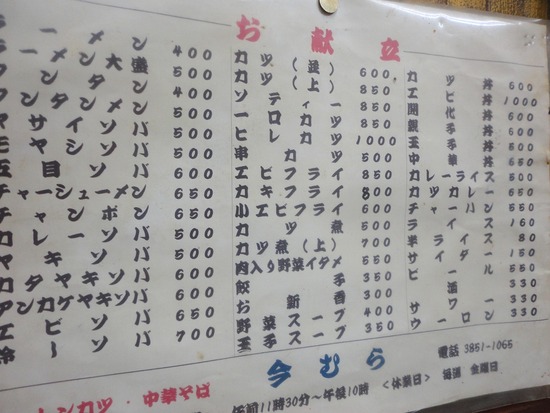 お献立
ラーメン 400
ラーメン大盛 500
ワンタン 400
ワンタンメン 500
ヤサイソバ 500
モヤシソバ 500
五目ソバ 600
チャーシューメン 650
チャンポン 650
カレーソバ 650
ヤキソバ 500
カタヤキソバ 600
アンカケヤキソバ 650
エビソバ 600
冷〜 700
カツ(並) 600
カツ(上) 850
ソティー 850
一口カツ 850
ヒレカツ 1000
串カツ 650
エビフライ 850
カキフライ 800
小エビフライ 600
カツ煮 500
カツ煮(上) 700
肉入り野菜イタメ 550
餃子 350
お新香 300
野菜スープ 400
玉子スープ 350
カツ丼 600
エビ丼 1000
開代丼 600
親子丼 500
玉子丼 500
中華丼 650
カレーライス 500
カツカレー 650
チャーハン 550
ライス 160
半ライス 80
サイダー 150
ビール 550
酒 330
サワー 330
ウーロン 330
トンカツ・中華そば
今むら
電話 3851-1065
午前11時30分〜午後10時 <休業日> 毎週 金曜日